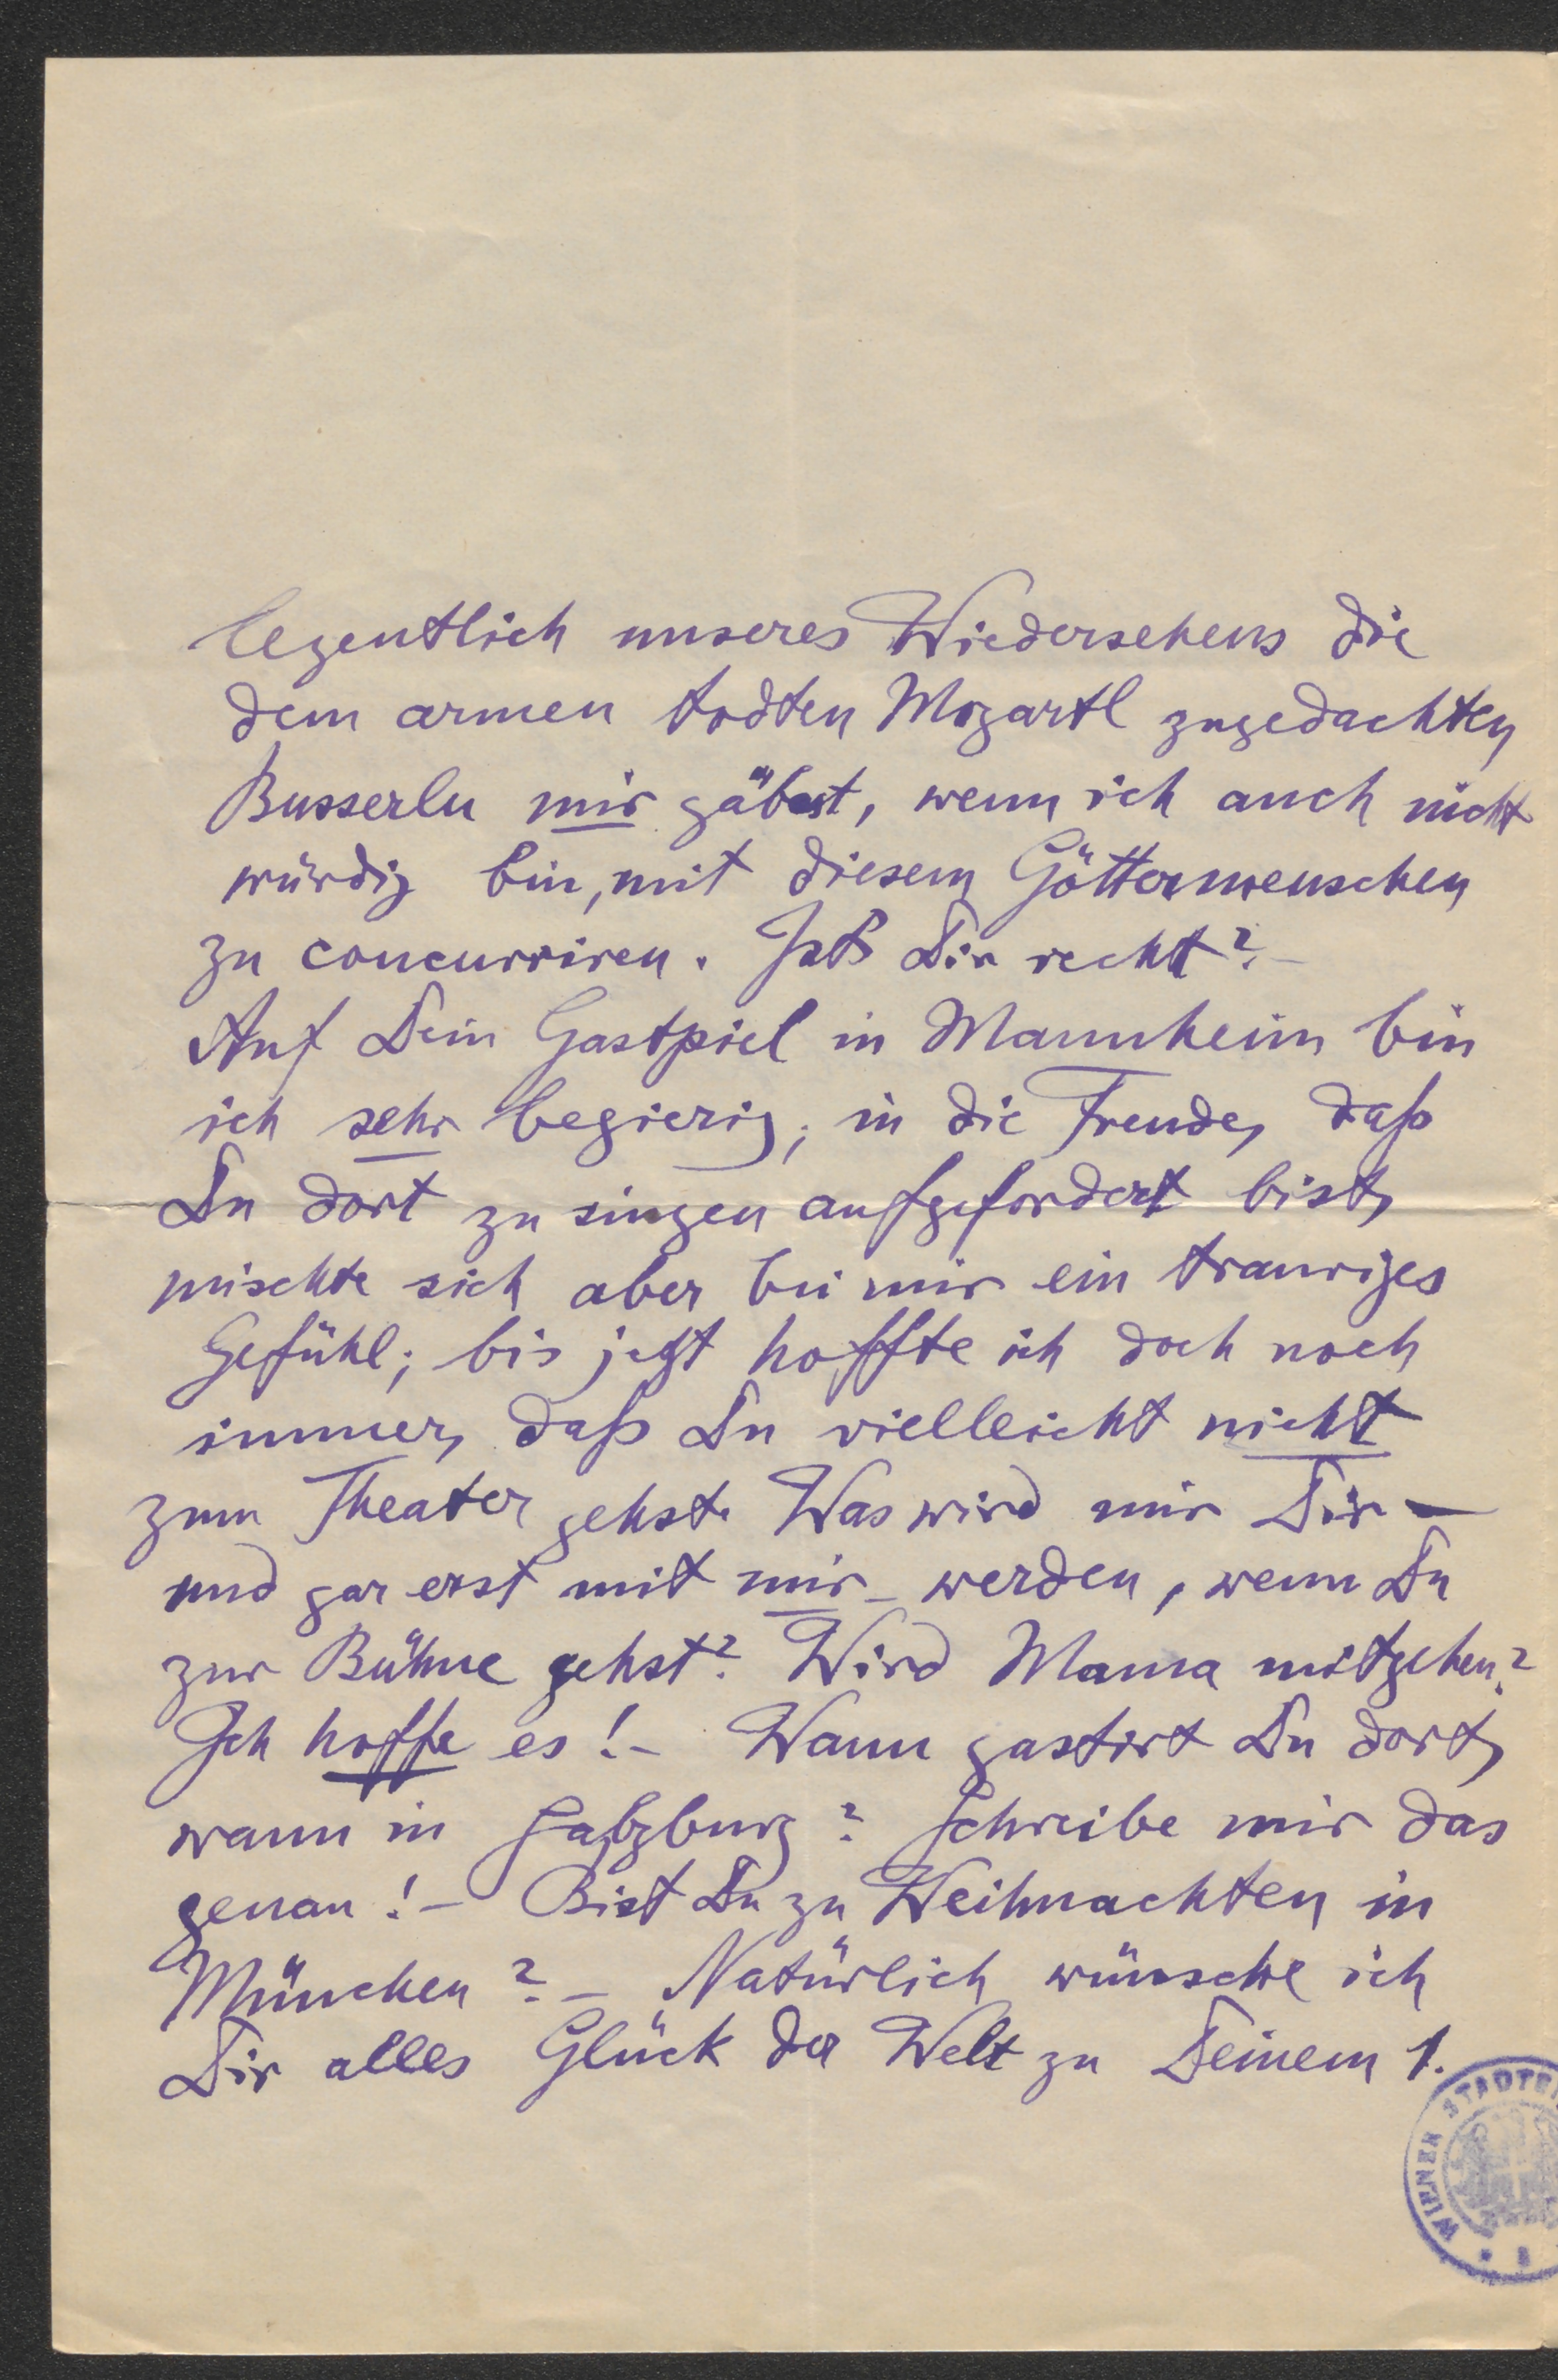 legentlich unseres Wiedersehens die
dem armen todten Mozartl zugedachten
Busserln mir gäbest, wenn ich auch nicht
würdig bin, mit diesem Göttermenschen
zu concurriren. Ists Dir recht? –
Auf Dein Gastpiel in Mannheim bin
ich sehr begierig; in die Freude, daß
Du dort zu singen aufgefordert bist,
mischte sich aber bei mir ein trauriges
Gefühl; bis jetzt hoffte ich doch noch
immer, daß Du vielleicht nicht
zum Theater gehst. Was wird mir Dir –
und gar erst mit mir – werden, wenn Du
zur Bühne gehst? Wird Mama mitgehen?
Ich hoffe es! – Wann gastirt Du dort,
wann in Salzburg? Schreibe mir das
genau! – Bist Du zu Weihnachten in
München? – Natürlich wünsche ich
Dir alles Glück der Welt zu Deinem 1.
WIENER STADTBI